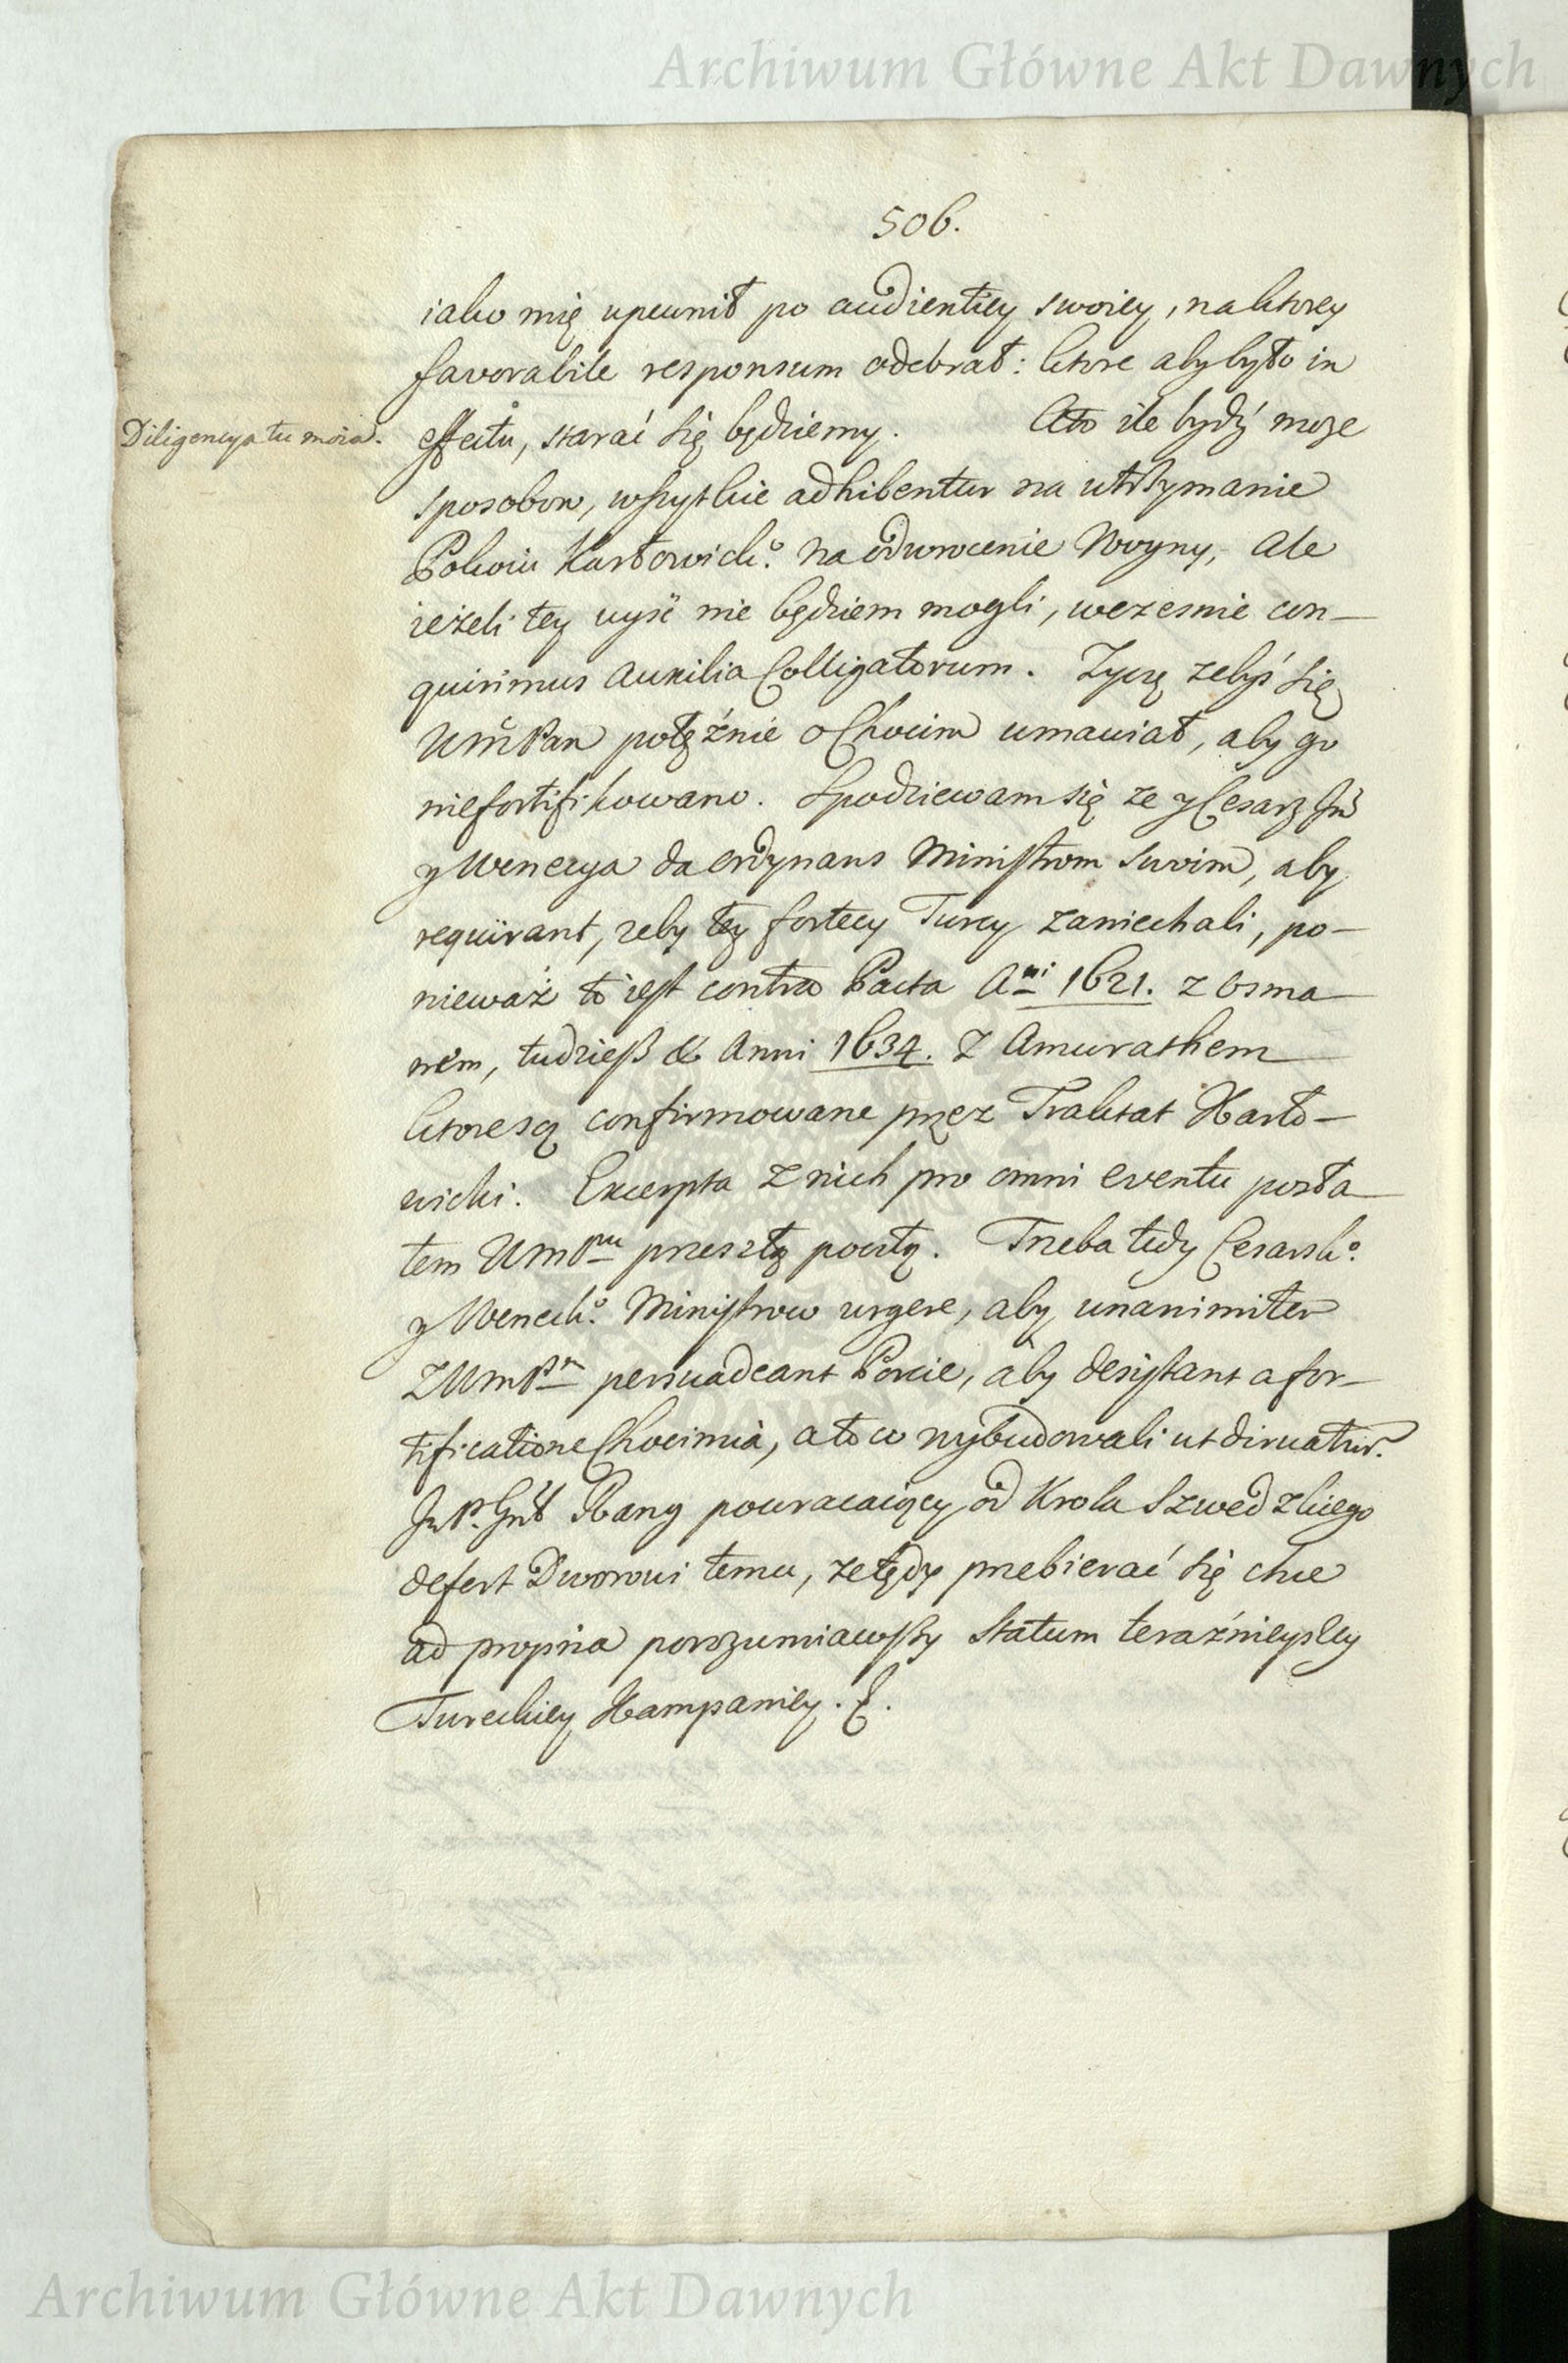 Archiwum Główne Akt Dawnych
506.
iako mię upewnił po audientiey swoiey, na ktorey
favorabile responsum odebrał: ktore aby było in
Diligencya tu moia.
effectu, starać się będziemy. A to ile bydź moze
sposobow, wszytkie adhibentur na utrzymanie
Pokoiu Karłowick.º na odwrocenie Woyny, Ale
ieżeli tey uyść nie będziem mogli, wczesnie con-
quirimus auxilia Colligatorum. Zyczę zebyś się
Um Pan potęźnie o Chocim umawiał, aby go
niefortifikowano. Spodziewam się ze y Cesarz Jm
y Wenecya da ordynans Ministrom swoim, aby
requirant, zeby tey fortecy Turcy zaniechali, po-
nieważ to iest contra Pacta Ani 1621. z Osma-
nem, tudziesz & Anni 1634. Z Amurathem
ktore są confirmowane przez Traktat Karło-
wicki. Excerpta z nich pro omni eventu posła-
łem UmPnu przeszłą pocztą. Trzeba tedy Cesarsk.º
y Weneck.º Ministrow urgere, aby unanimiter
Z UmPn persuadeant Porcie, aby desistant a for-
tificatione Chocimia, a to co wybudowali ut diruatur.
JmP. Gnł Rang powracaiący od Krola Szwedzkiego
defert Dworowi temu, ze tędy przebierać się chce
ad propria porozumiawszy statum teraźnieyszey
Tureckiey Kampaniey.
Archiwum Główne Akt Dawnych